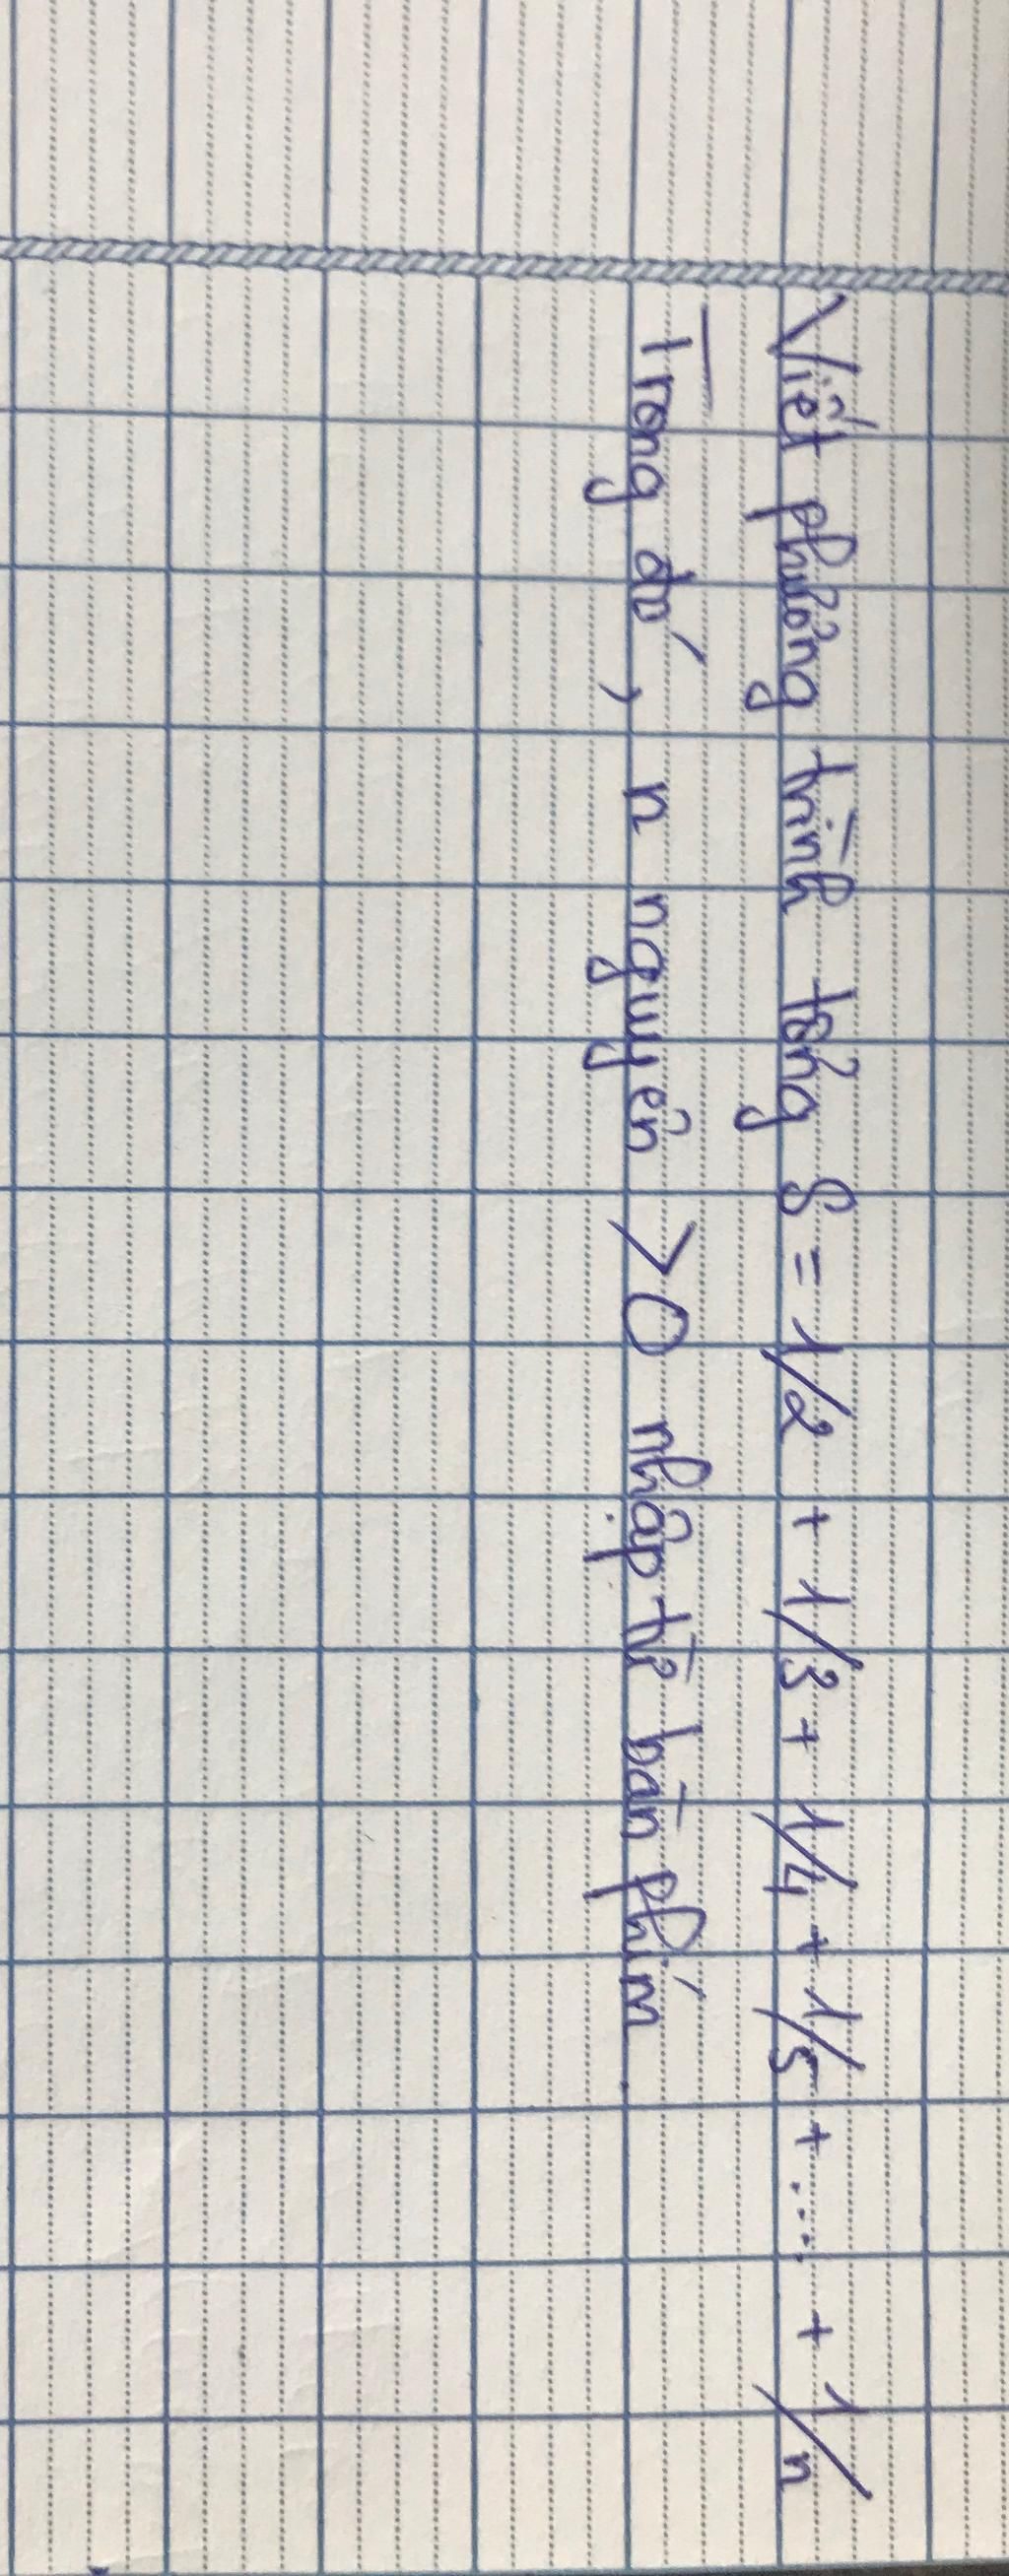 Viết phương trình tổng S = 1/2 + 1/3 + 1/4 + 1/5 + .... + 1/n
Trong đó, n nguyên >0 nhập từ bàn phím.